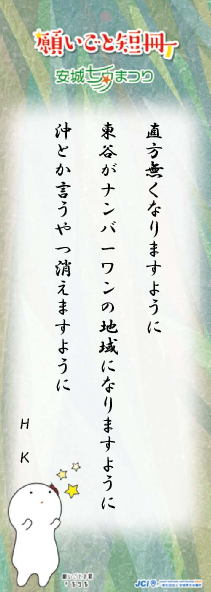 願いごと短冊
安城七夕まつり
直方無くなりますように
東谷がナンバーワンの地域になりますように
沖とか言うやつ消えますように
H K
JCI